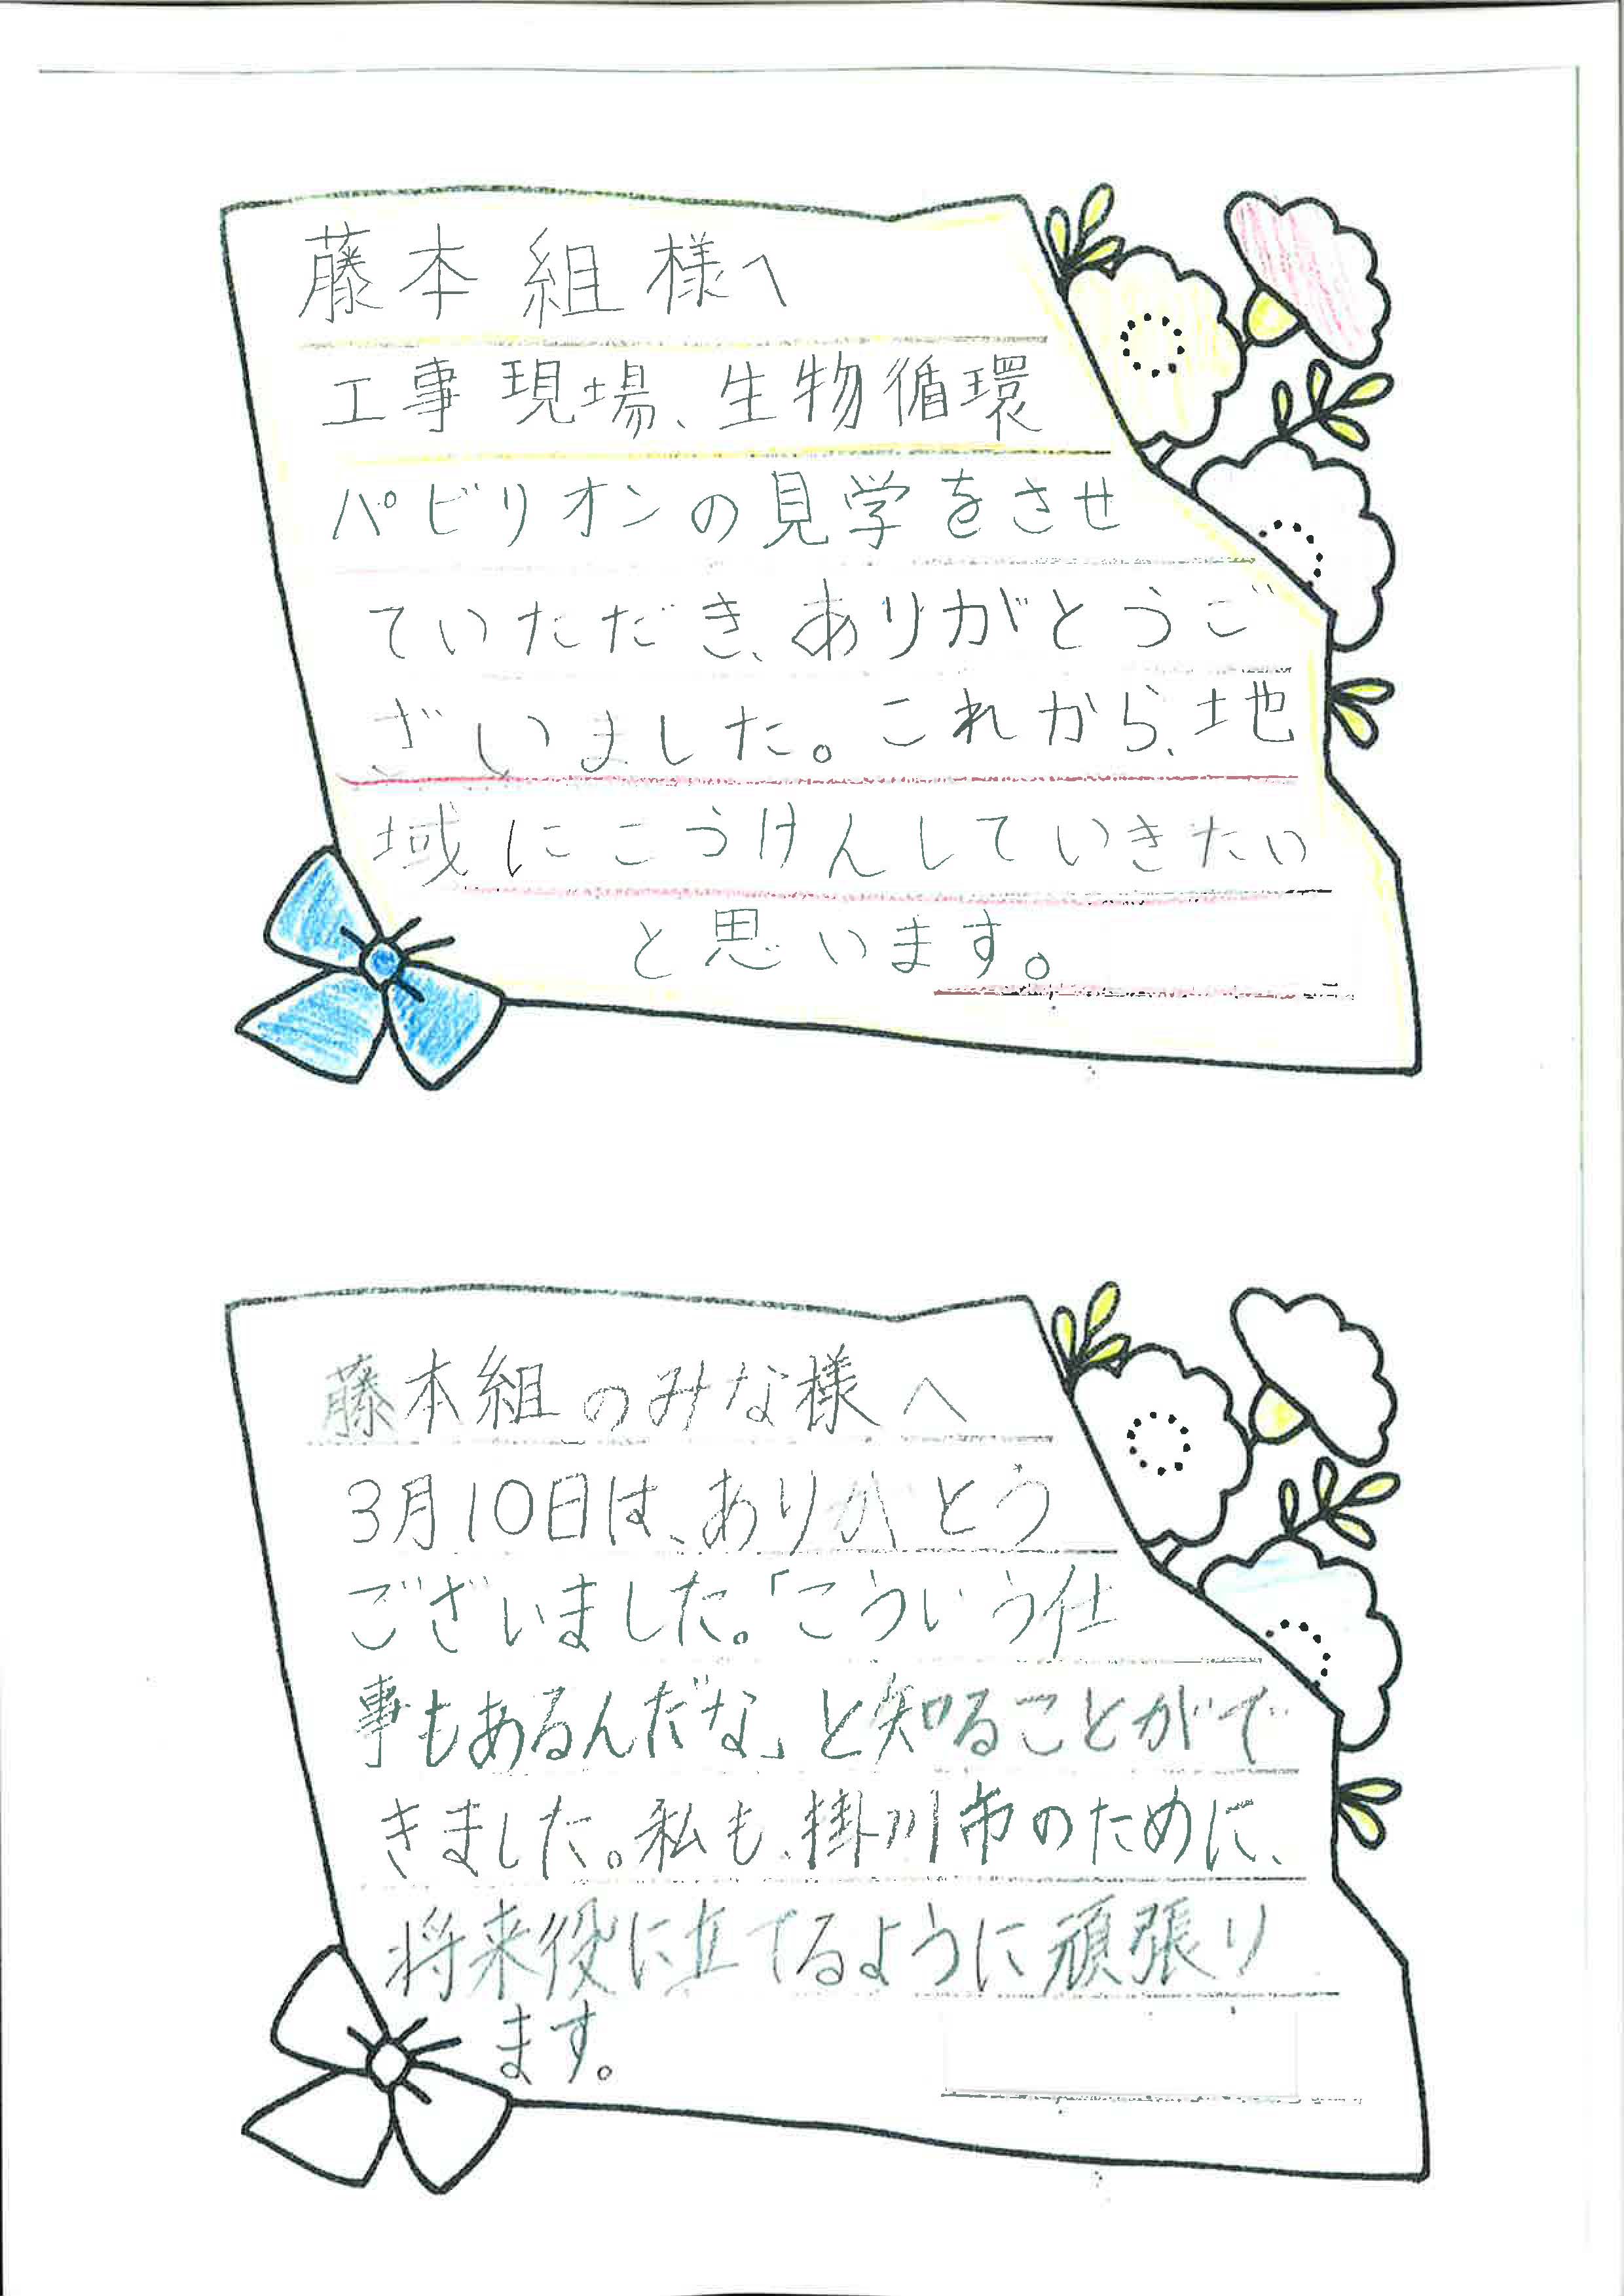 藤本組様へ
工事現場、生物循環
パビリオンの見学をさせ
ていただき、ありがとうご
ざいました。これから、地
域にこうけんしていきたい
と思います。
藤本組のみな様へ
3月10日は、ありがとう
ございました。「こういう仕
事もあるんだな」と知ることがで
きました。私も、掛川市のために、
将来役に立てるように頑張り
ます。